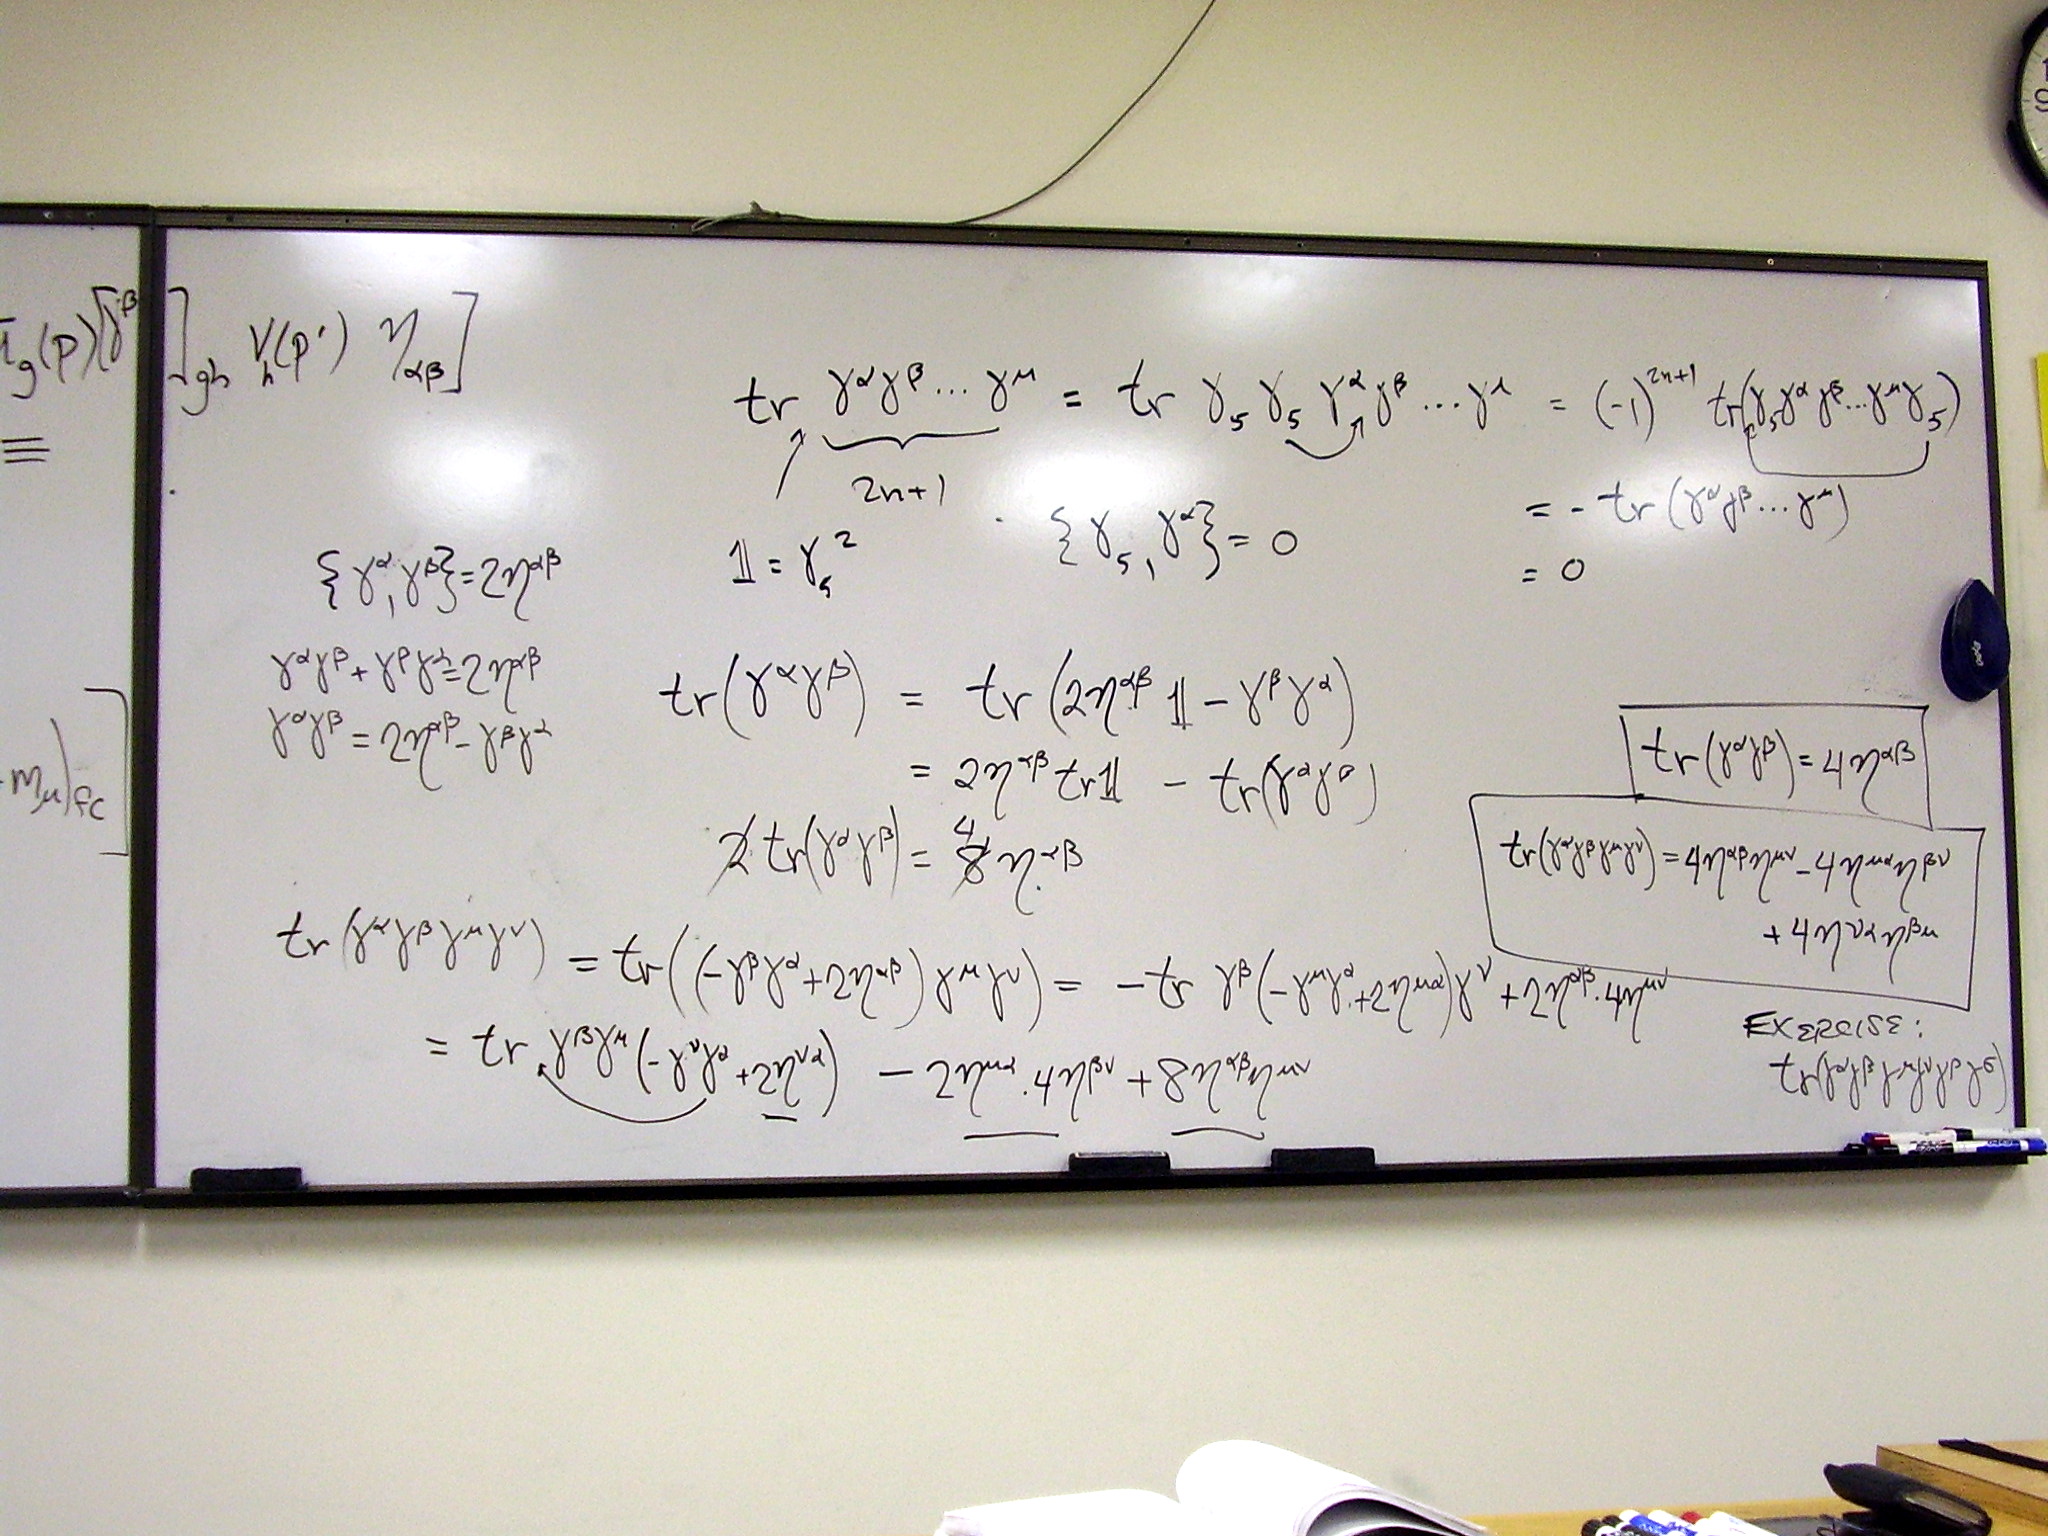 ū_g(p)[γ^β]_gh V_h(p') η_αβ]
≡
m_μ)_fc]
tr γ^α γ^β ... γ^μ = tr γ_5 γ_5 γ^α γ^β ... γ^μ = (-1)^{2n+1} tr(γ_5 γ^α γ^β ... γ^μ γ_5)
2n+1
= - tr (γ^α γ^β ... γ^μ)
𝟙 = γ_5^2
{γ_5, γ^α} = 0
= 0
{γ^α, γ^β} = 2η^{αβ}
γ^α γ^β + γ^β γ^α = 2η^{αβ}
γ^α γ^β = 2η^{αβ} - γ^β γ^α
tr(γ^α γ^β) = tr(2η^{αβ} 𝟙 - γ^β γ^α)
= 2η^{αβ} tr 𝟙 - tr(γ^α γ^β)
2 tr(γ^α γ^β) = 4 8 η^{αβ}
tr(γ^α γ^β) = 4η^{αβ}
tr(γ^α γ^β γ^μ γ^ν) = 4η^{αβ} η^{μν} - 4η^{μα} η^{βν}
+ 4η^{να} η^{βμ}
tr(γ^α γ^β γ^μ γ^ν) = tr((-γ^β γ^α + 2η^{αβ}) γ^μ γ^ν) = - tr γ^β (-γ^μ γ^α + 2η^{μα}) γ^ν + 2η^{αβ} · 4η^{μν}
= tr γ^β γ^μ (-γ^ν γ^α + 2η^{να}) - 2η^{μα} · 4η^{βν} + 8η^{αβ} η^{μν}
EXERCISE:
tr(γ^α γ^β γ^μ γ^ν γ^ρ γ^σ)